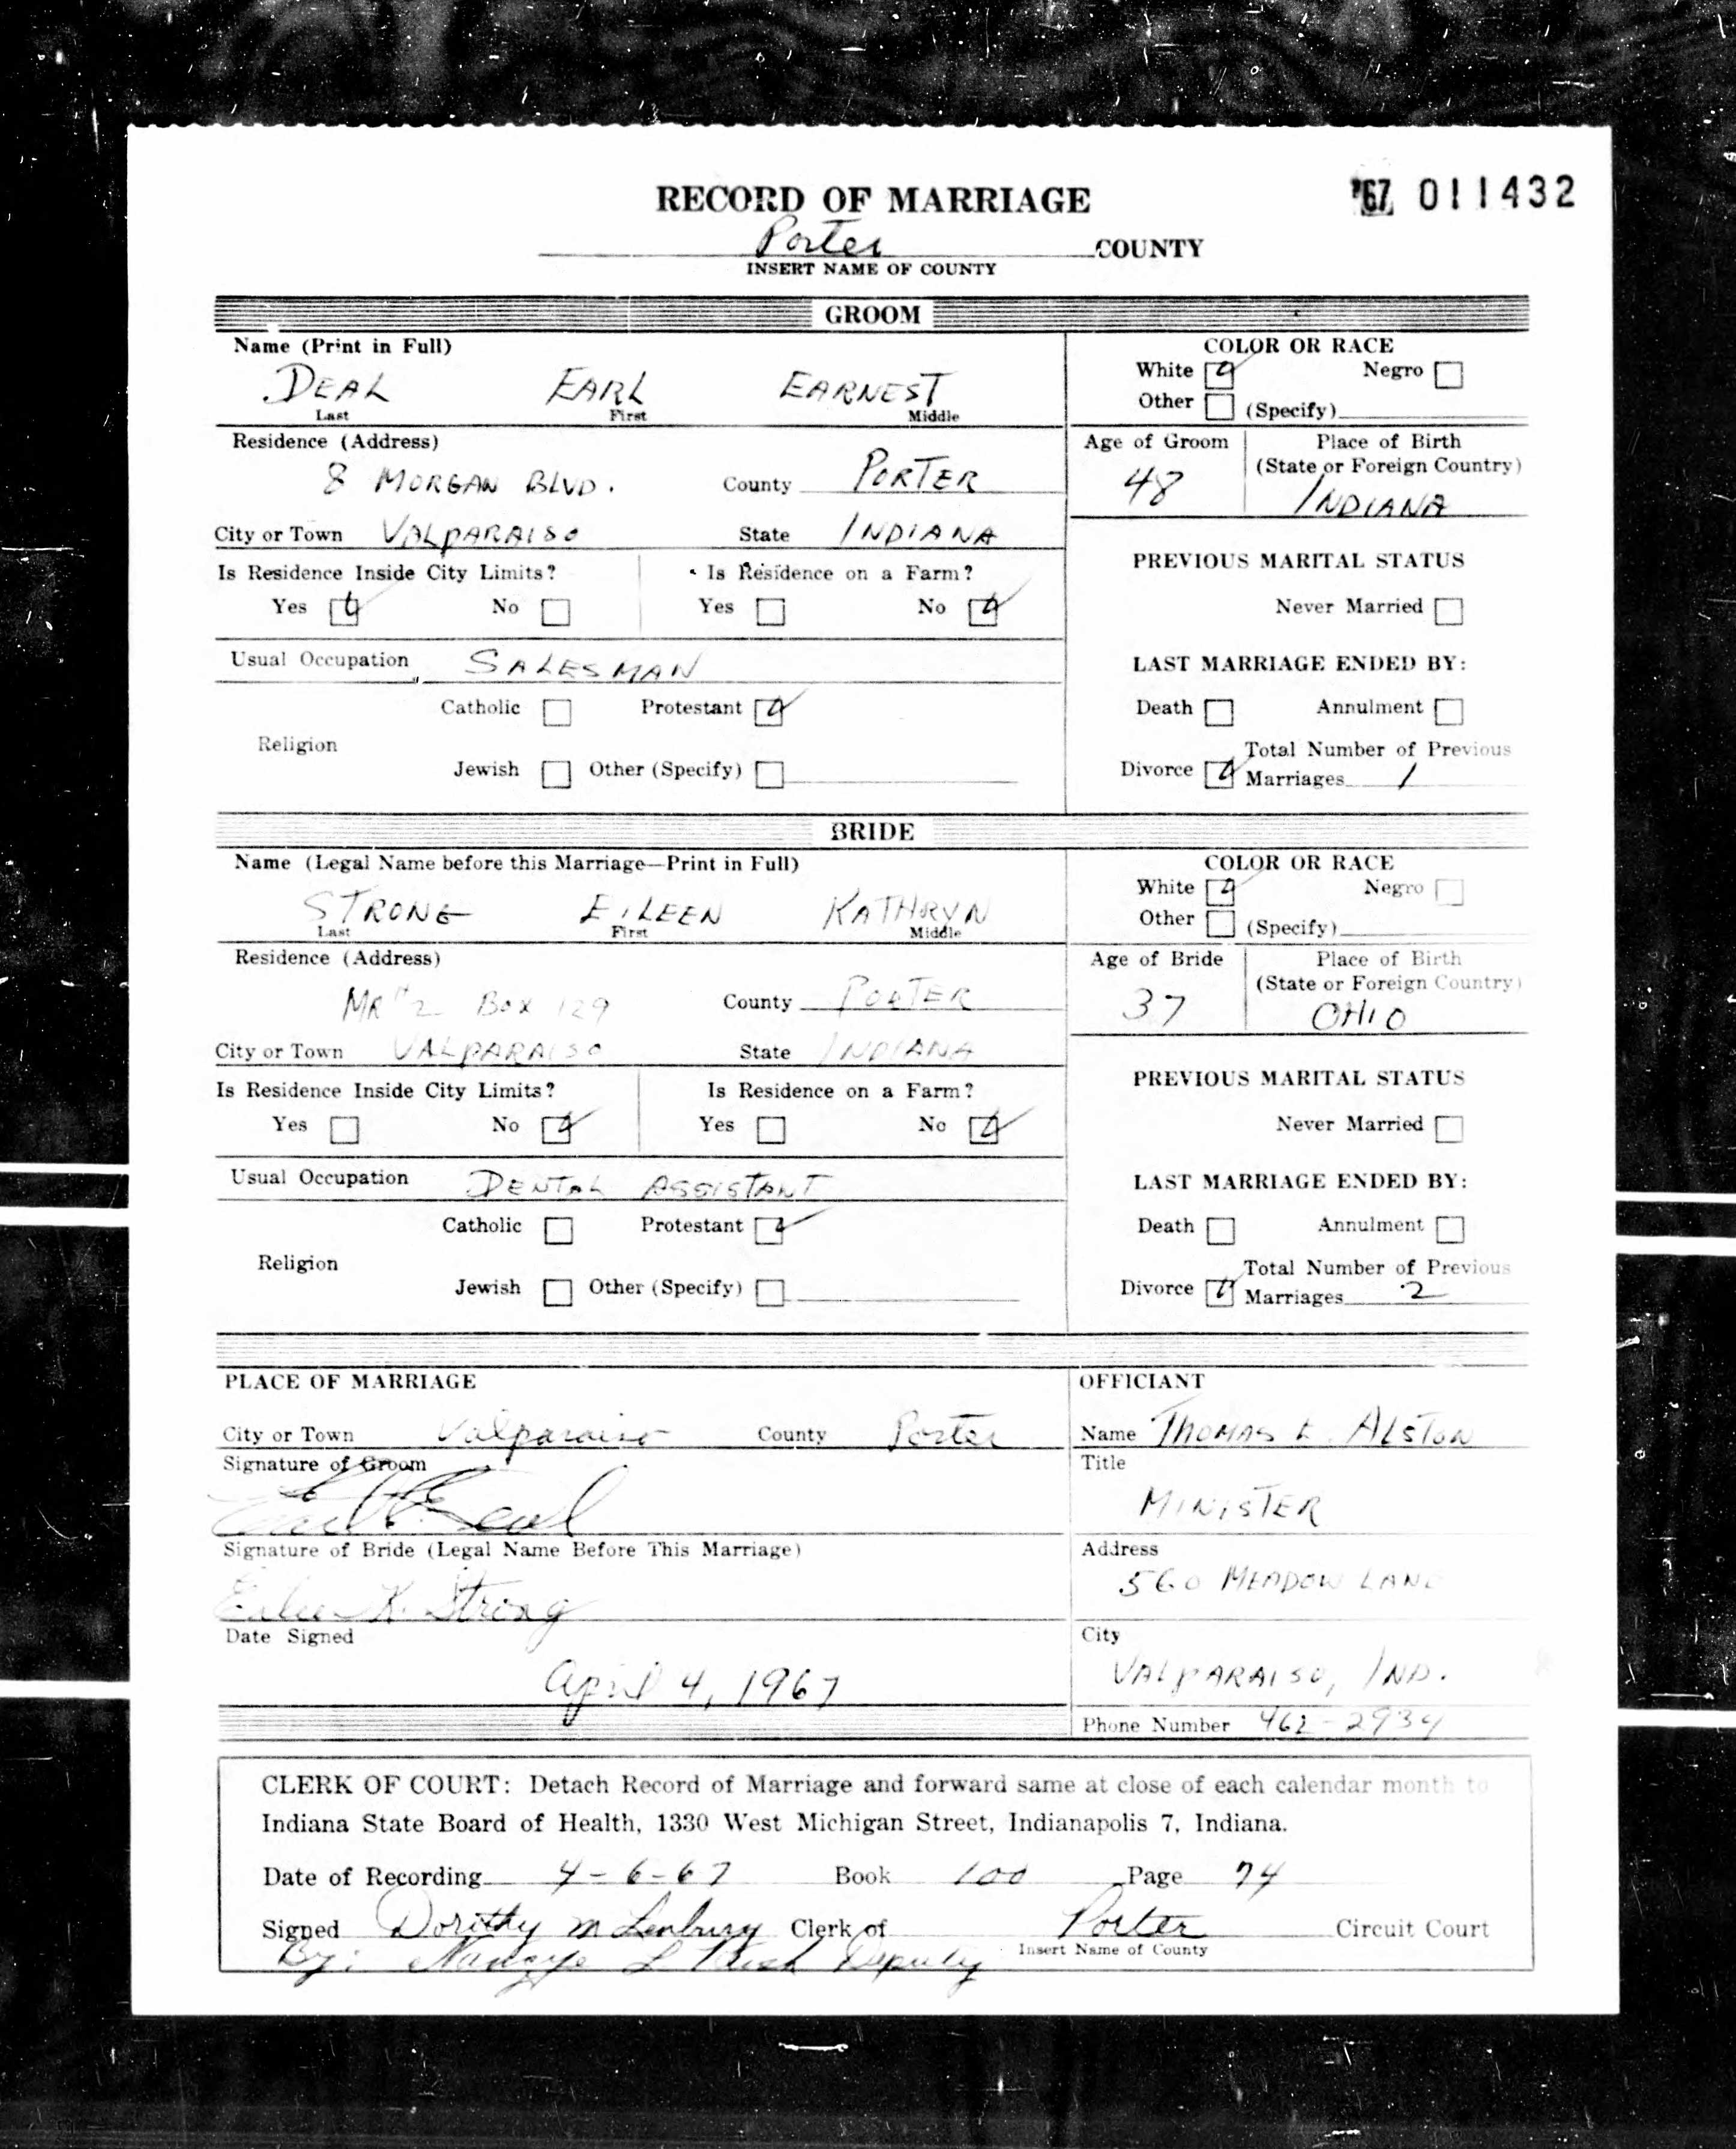 RECORD OF MARRIAGE
'67 011432
Porter COUNTY
INSERT NAME OF COUNTY
GROOM
Name (Print in Full)
DEAL EARL EARNEST
Last First Middle
COLOR OR RACE
White Negro
Other (Specify)
Residence (Address)
8 MORGAN BLVD. County PORTER
City or Town VALPARAISO State INDIANA
Age of Groom
48
Place of Birth
(State or Foreign Country)
INDIANA
Is Residence Inside City Limits?
Yes No
Is Residence on a Farm?
Yes No
Usual Occupation SALESMAN
Religion
Catholic Protestant
Jewish Other (Specify)
PREVIOUS MARITAL STATUS
Never Married
LAST MARRIAGE ENDED BY:
Death Annulment
Divorce Total Number of Previous
Marriages 1
BRIDE
Name (Legal Name before this Marriage—Print in Full)
STRONG EILEEN KATHRYN
Last First Middle
COLOR OR RACE
White Negro
Other (Specify)
Residence (Address)
MR #2 Box 129 County PORTER
City or Town VALPARAISO State INDIANA
Age of Bride
37
Place of Birth
(State or Foreign Country)
OHIO
Is Residence Inside City Limits?
Yes No
Is Residence on a Farm?
Yes No
Usual Occupation DENTAL ASSISTANT
Religion
Catholic Protestant
Jewish Other (Specify)
PREVIOUS MARITAL STATUS
Never Married
LAST MARRIAGE ENDED BY:
Death Annulment
Divorce Total Number of Previous
Marriages 2
PLACE OF MARRIAGE
City or Town Valparaiso County Porter
Signature of Groom
Earl E. Deal
Signature of Bride (Legal Name Before This Marriage)
Eileen K. Strong
Date Signed
April 4, 1967
OFFICIANT
Name THOMAS E. ALSTON
Title
MINISTER
Address
560 MEADOW LANE
City
VALPARAISO, IND.
Phone Number 462-2934
CLERK OF COURT: Detach Record of Marriage and forward same at close of each calendar month to
Indiana State Board of Health, 1330 West Michigan Street, Indianapolis 7, Indiana.
Date of Recording 4-6-67 Book 100 Page 74
Signed Dorithy M Lenburg Clerk of Porter Circuit Court
Insert Name of County
By: L Deputy